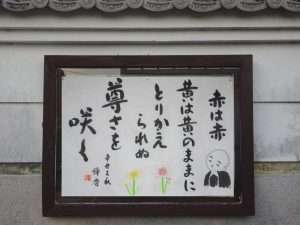 赤は赤
黄は黄のままに
とりかえ
られぬ
尊さを
咲く